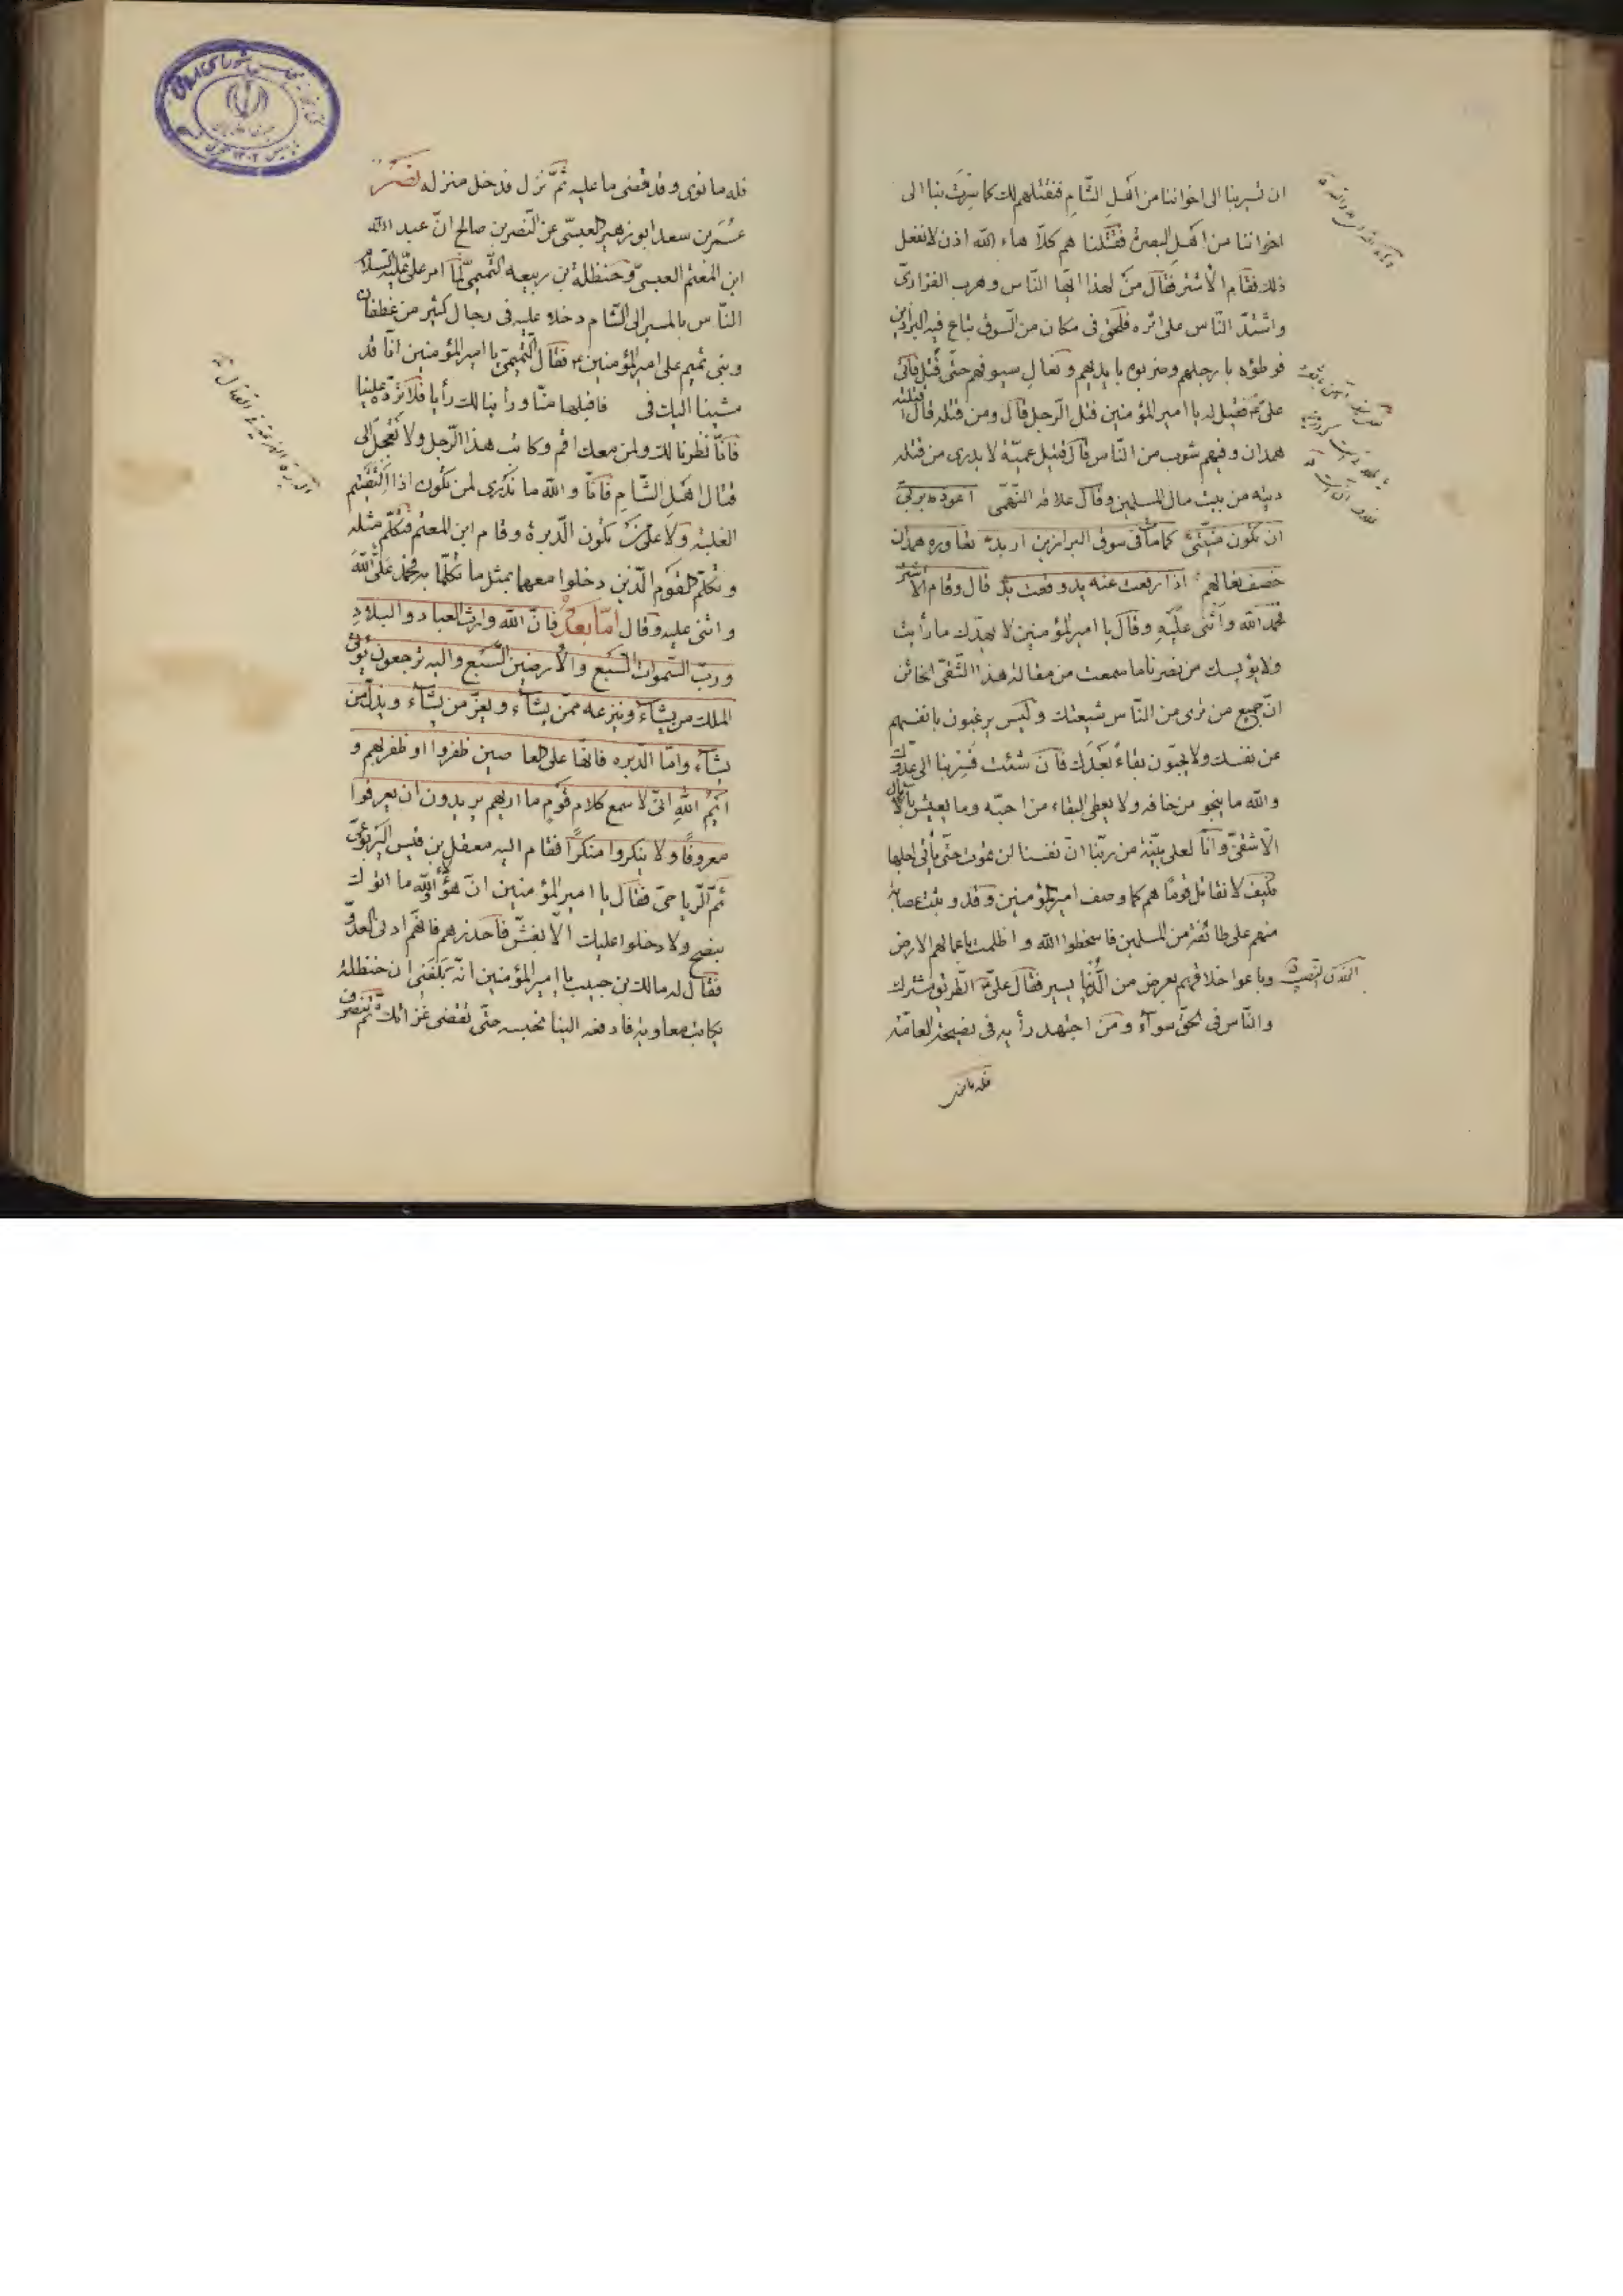 ان تسيربنا الى اخواننا من اهل الشّام فنقتلهم لك كما سِرتَ بنا الى
اخواننا من اهل البصرة فقتلنا هم كلّا هاء الله اذن لانفعل
ذلك فقام الاشتر فقال مَن لهذا ايّها النّاس وهرب الفزارىّ
واشتدّ النّاس على اثره فلحق فى مكان من السّوق تباع فيه البراذين
فوطؤه بارجلهم وضربوه بايديهم ونعال سيوفهم حتّى قُتِل فاتى
علىّ فقيل له يا امير المؤمنين قتل الرّجل قال ومن قتله قال قتلته
همدان وفيهم شوب من النّاس فقال قتيل عميّة لا يدرى من قتله
ديته من بيت مال المسلمين وقال علاقه التّيمى اعوذ بربّى
ان تكون منيّتى كما مات فى سوق البراذين اربد تعاوره همدان
خصف نعالهم اذا رفعت عنه يد وقعت يد قال وقام الاشتر
فحمد الله واثنى عليه وقال يا امير المؤمنين لا يهدّنك ما رأيت
ولا يؤيسك من نصرنا ما سمعت من مقالة هذا الشّقىّ الخائن
انّ جميع من ترى من النّاس شيعتك وليس يرغبون بانفسهم
عن نفسك ولا يحبّون بقاءً بعدك فان شئت فسِر بنا الى عدوّك
والله ما ينجو من خافه ولا يعطى البقاء من احبّه وما يعيش بالآمال
الّا شقىّ وانّا لعلى بيّنة من ربّنا انّ نفسا لن تموت حتّى يأتى اجلها
فكيف لا نقاتل قومًا هم كما وصف امير المؤمنين وقد وثبت عصابة
منهم على طائفة من المسلمين فاسخطوا الله واظلمت باعمالهم الارض
وباعوا خلاقهم بعرض من الدّنيا يسير فقال علىّ الطّريق مشترك
والنّاس فى الحقّ سواء ومن اجتهد رأيه فى نصيحة العامّة
فله ما نوى
فله ما نوى وقد قضى ما عليه ثمّ نزل فدخل منزله نصر
عمر بن سعد ابو زهير العبسىّ عن النّضر بن صالح انّ عبد الله
ابن المعتم العبسىّ وحنظلة بن ربيعه التّميمىّ لمّا امر علىّ عليه السلام
النّاس بالمسير الى الشّام دخلا عليه فى رجال كثير من غطفان
وبنى تميم على امير المؤمنين فقال التّميمىّ يا امير المؤمنين انّا قد
مشينا اليك فى فاقبلها منّا ورأينا لك رأيا فلا تردّه علينا
فانّا نظرنا لك ولمن معك اقم وكاتب هذا الرّجل ولا تعجل الى
قتال اهل الشّام فانّا والله ما ندرى لمن تكون اذا التقيتم
الغلبة ولا على من تكون الدّبرة وقام ابن المعتم فتكلّم مثله
وتكلّم القوم الّذين دخلوا معهما بمثل ما تكلّما به فحمد علىّ الله
واثنى عليه وقال امّا بعد فانّ الله وارث العباد والبلاد
وربّ السّموات السّبع والارضين السّبع واليه ترجعون يؤتى
الملك من يشاء وينزعه ممّن يشاء ويعزّ من يشاء ويذلّ من
يشاء وامّا الدّبره فانّها على العاصين ظفروا او ظفر بهم و
ايم الله انّى لاسمع كلام قوم ما اريهم يريدون ان يعرفوا
معروفًا ولا ينكروا منكرًا فقام اليه معقل بن قيس اليربوعىّ
ثمّ الرّياحىّ فقال يا امير المؤمنين انّ هؤلاء والله ما اتوك
بنصح ولا دخلوا عليك الّا بغشّ فاحذرهم فانّهم ادنى العدوّ
فقال له مالك بن حبيب يا امير المؤمنين انّه بلغنى ان حنظلة
يكاتب معاوية فادفعه الينا نحبسه حتّى تقضى غزاتك ثمّ تنصرف